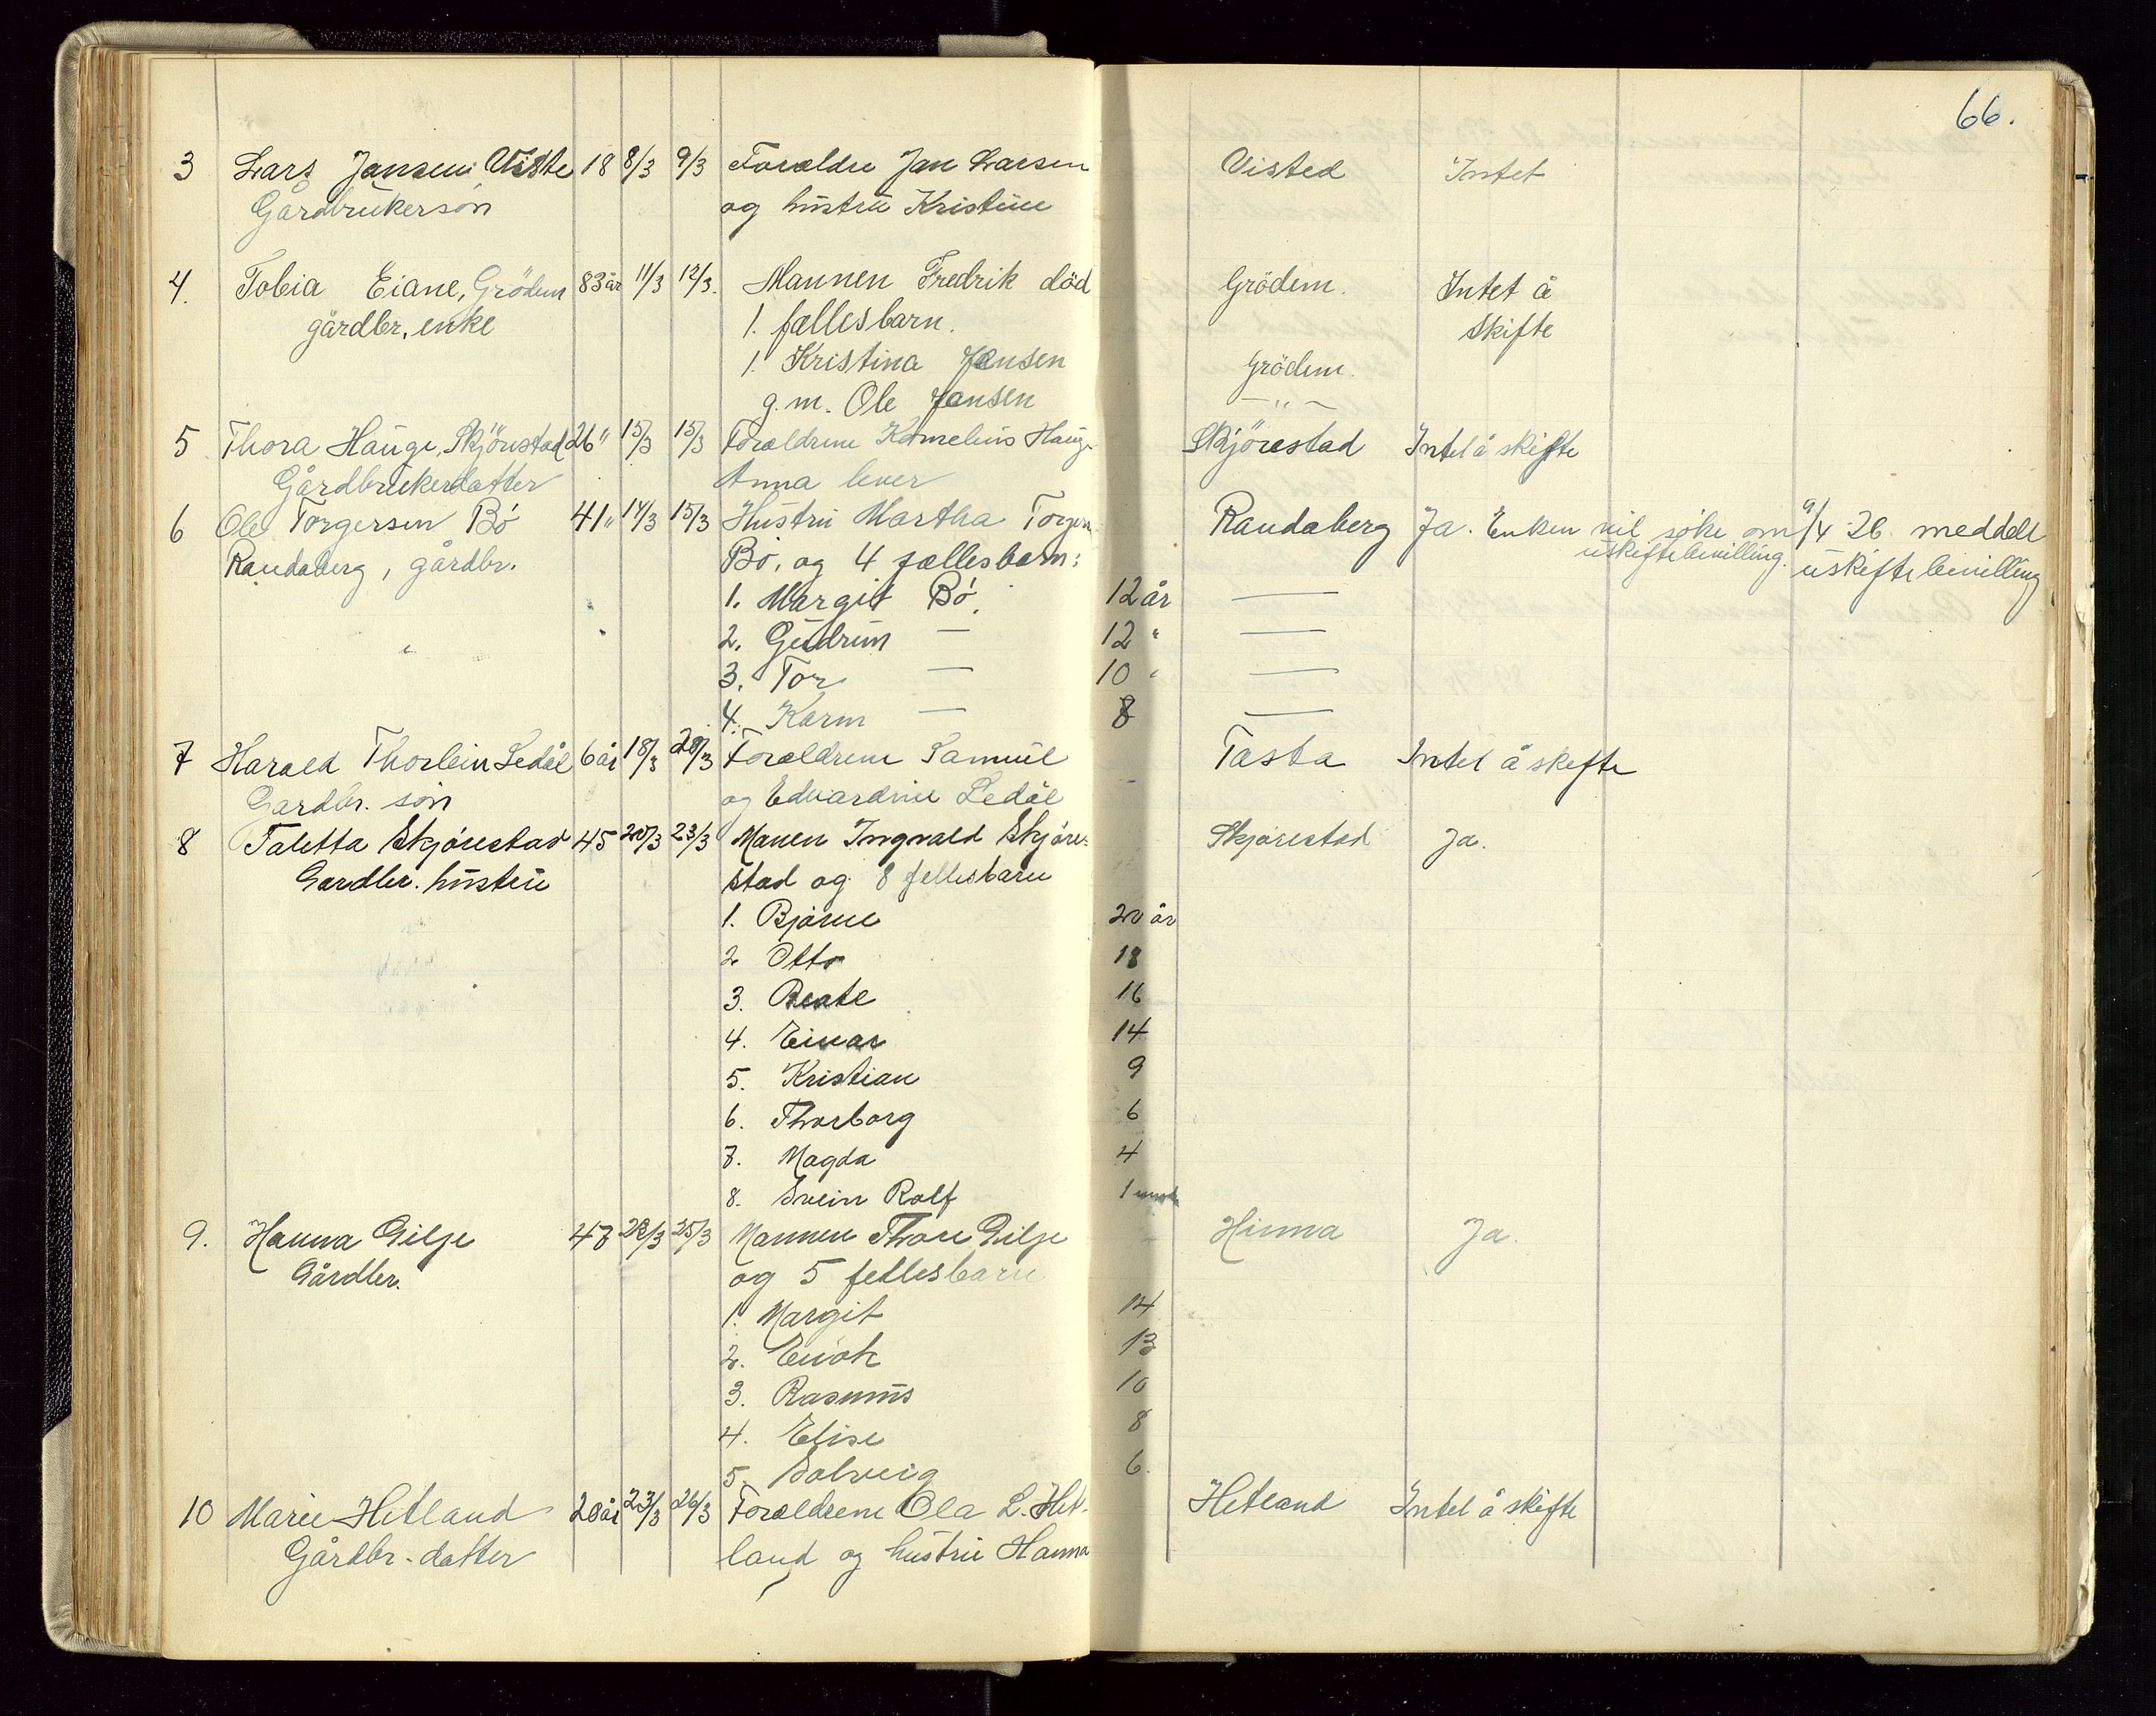 66.
3 Lars Jansen Viste 18 8/3 9/3 Forældre Jan Larsen Visted Intet
Gårdbrukersön og hustru Kristine
4. Tobia Eiane, Grödem 83 år 11/3 12/3. Mannen Fredrik död Grödem. Intet å
gårdbr. enke 1. fællesbarn. skifte
1. Kristina Jansen Grödem.
g.m. Ole Jansen — " —
5 Thora Hauge, Skjörestad 26 " 15/3 15/3 Forældrene Kornelius Hauge Skjörestad Intet å skifte
Gårdbrukerdatter Anna lever
6 Ole Torgersen Bö 41 " 14/3 15/3 Hustru Martha Torgersen Randaberg Ja. Enken vil söke om 9/4 26. meddelt
uskiftebevilling. uskiftebevilling
Randaberg, gårdbr. Bö, og 4 fællesbarn:
1. Margit Bö. 12 år —
2. Gudrun — 12 " —
3. Tor — 10 " —
4. Karin — 8 —
7 Harald Thorbein Ledål 6 år 18/3 20/3 Forældrene Samuel Tasta Intet å skifte
Gardbr. sön og Edvardine Ledål
8 Taletta Skjörestad 45 20/3 23/3 Manen Ingvald Skjöre- Skjörestad Ja.
Gardbr. hustru stad og 8 fellesbarn
1. Bjarne 20 år
2 Otto 18
3. Beate 16
4. Einar 14
5. Kristian 9
6. Thorborg 6
7. Magda 4
8. Svein Rolf 1
9. Hanna Gilje 47 22/3 25/3 Mannen Thore Gilje Hinna Ja.
Gårdbr. og 5 fellesbarn
1. Margit 14
2. Enok 13
3. Rasmus 10
4. Elise 8
5. Solveig 6.
10 Marie Hetland 20 år 23/3 26/3 Forældrene Ola L. Het- Hetland Intet å skifte
Gårdbr. datter land og hustru Hanna